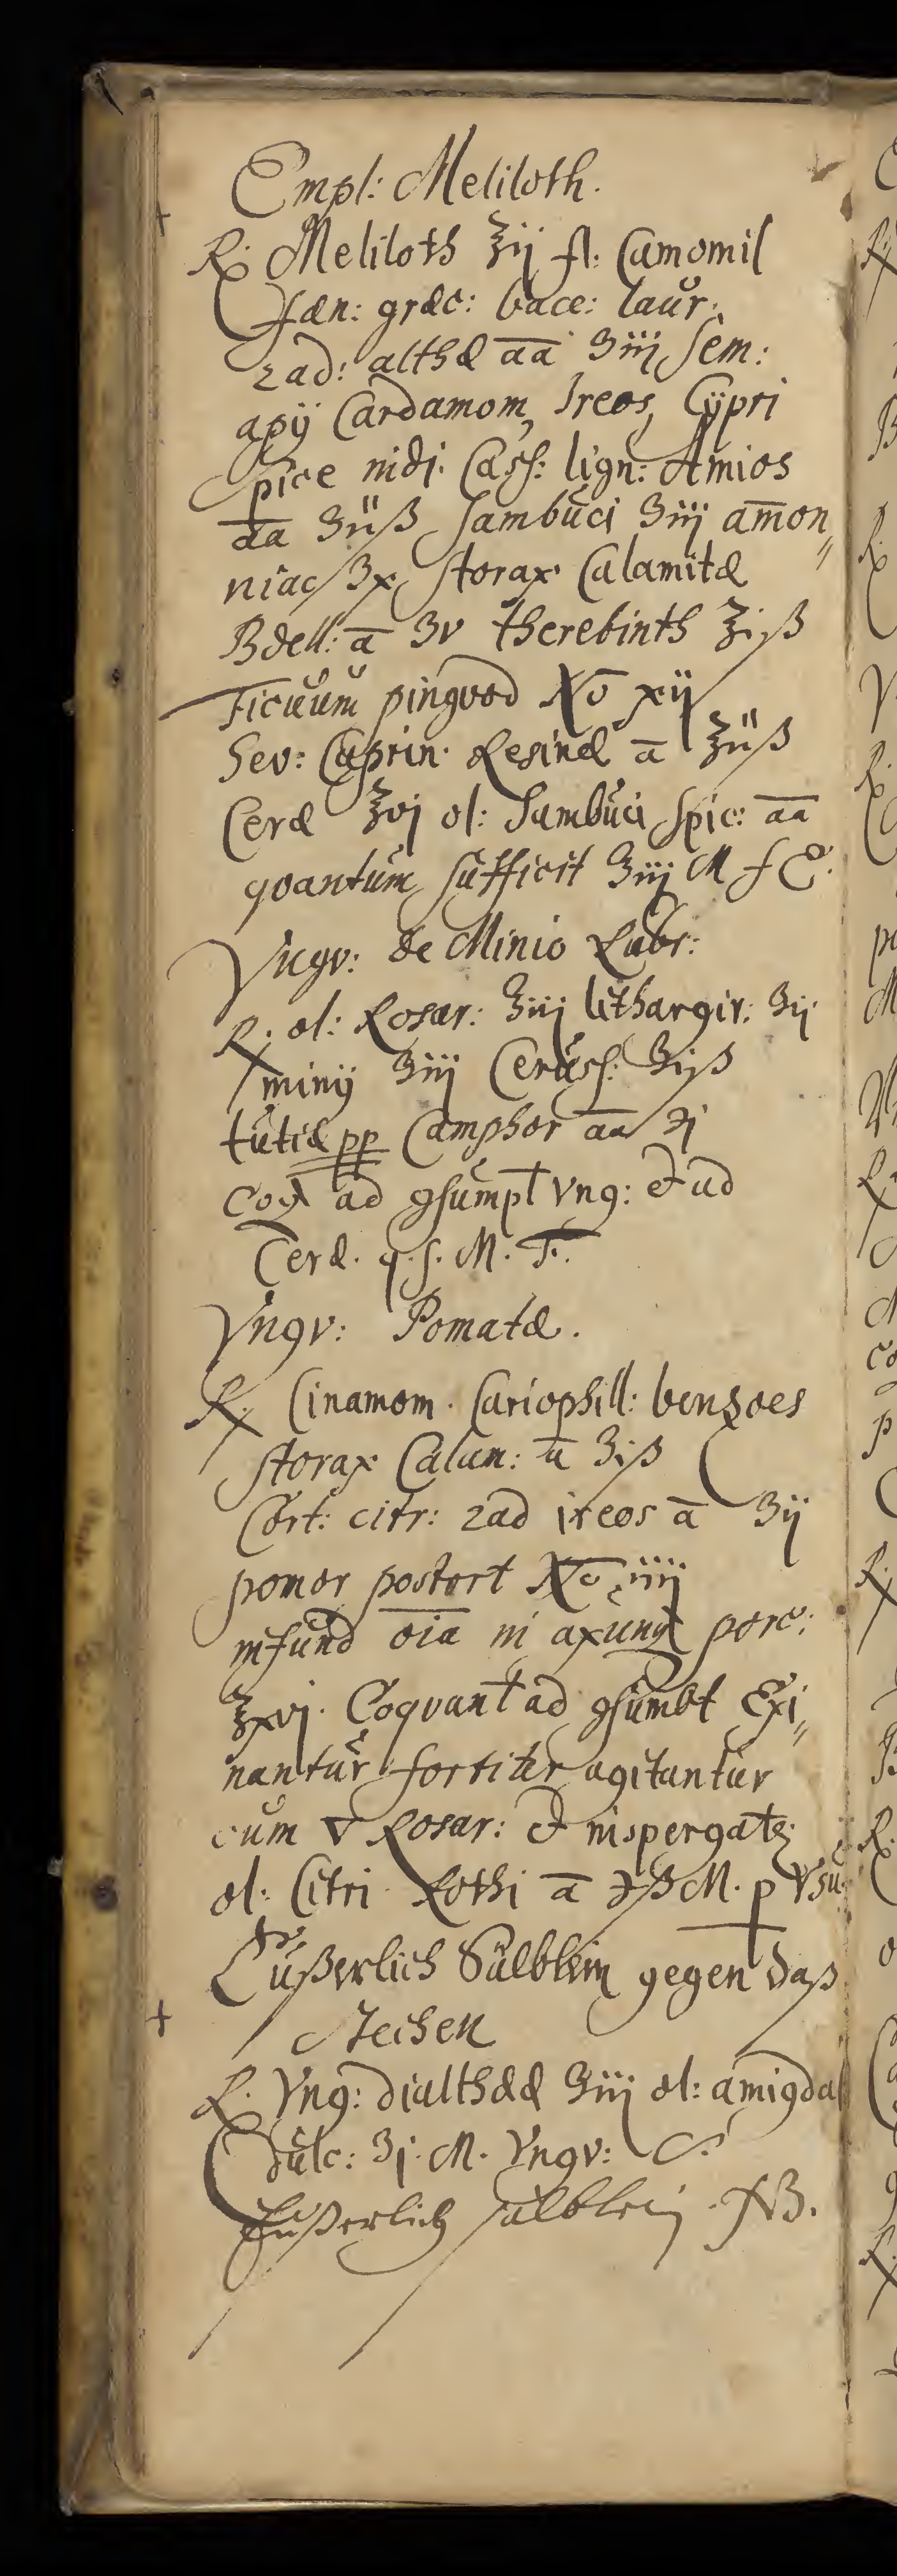 Empl: Meliloth.
℞ Meliloth ℥ij fl: Camomil
fæn: græc: bacc: laur:
rad: althæ āā ʒiij Sem:
apij Cardamom, Ireos, Cÿpri
spice nidi. Cass: lign: Amios
āā ʒiiß Sambuci ʒiij amon„
niac ʒx, storax Calamitæ
Bdell: ā ʒv therebinth ℥iß
Ficuum pingvod No xij
Sev: Caprin. Resinæ ā ℥iiß
Ceræ ℥vj ol: Sambuci Spic: āā
qvantum sufficit ʒiij M f E.
Vngv: de Minio Rubr:
℞ ol: Rosar: ʒiij lithargir: ʒij
minij ʒiij Ceruss: ʒiß
tutiæ pp Camphor āā ʒj
Coq ad gsumpt vng: & ad
Ceræ. q. s. M. F.
Vngv: Pomatæ.
℞ Cinamom. Cariophill: benzoes
storax Calam: ā ʒiß
Cort: citr: rad ireos ā ʒij
pomor postort No iiij
infund oīa in axung porc:
℥xvj. Coqvant ad gsumbt Exi„
nantur fortiter agitantur
cum ▽ Rosar: & inspergatꝫ
ol: Citri Rothi ā ℈ß M. p Vsu
Eußerlich Sälblein gegen daß
stechen
℞ Vng: dialthææ ʒiij ol: amigdal
dulc: ʒj. M. Vngv: S.
Eußerlich sälblein. NB.